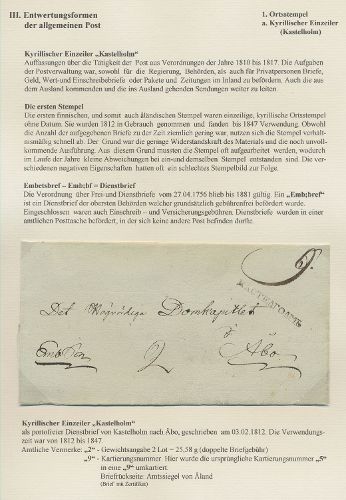 III. Entwertungsformen
der allgemeinen Post
1. Ortsstempel
a. Kyrillischer Einzeiler
(Kastelholm)
Kyrillischer Einzeiler „Kastelholm"
Auffassungen über die Tätigkeit der Post aus Verordnungen der Jahre 1810 bis 1817. Die Aufgaben
der Postverwaltung war, sowohl für die Regierung, Behörden, als auch für Privatpersonen Briefe,
Geld, Wert-und Einschreibebriefe oder Pakete und Zeitungen im Inland zu befördern. Auch die aus
dem Ausland kommenden und die ins Ausland gehenden Sendungen weiter zu leiten.
Die ersten Stempel
Die ersten finnischen, und somit auch åländischen Stempel waren einzeilige, kyrillische Ortsstempel
ohne Datum. Sie wurden 1812 in Gebrauch genommen und fanden bis 1847 Verwendung. Obwohl
die Anzahl der aufgegebenen Briefe zu der Zeit ziemlich gering war, nutzen sich die Stempel verhält-
nismäßig schnell ab. Der Grund war die geringe Widerstandskraft des Materials und die noch unvoll-
kommende Ausführung. Aus diesem Grund mussten die Stempel oft aufgearbeitet werden, wodurch
im Laufe der Jahre kleine Abweichungen bei ein-und demselben Stempel entstanden sind. Die ver-
schiedenen negativen Eigenschaften hatten oft ein schlechtes Stempelbild zur Folge.
Embetsbref – Emb;bf = Dienstbrief
Die Verordnung über Frei-und Dienstbriefe vom 27.04.1756 blieb bis 1881 gültig. Ein „Emb;bref"
ist ein Dienstbrief der obersten Behörden welcher grundsätzlich gebührenfrei befördert wurde.
Eingeschlossen waren auch Einschreib – und Versicherungsgebühren. Dienstbriefe wurden in einer
amtlichen Posttasche befördert, in der sich keine andere Post befinden durfte.
9.
Det Högvördiga Domkapitlet
i
Åbo
2
Kyrillischer Einzeiler „Kastelholm"
als portofreier Dienstbrief von Kastelholm nach Åbo, geschrieben am 03.02.1812. Die Verwendungs-
zeit war von 1812 bis 1847.
Amtliche Vermerke: „2" - Gewichtsangabe 2 Lot = 25,58 g (doppelte Briefgebühr)
„9" - Kartierungsnummer. Hier wurde die ursprüngliche Kartierungsnummer „5"
in eine „9" umkartiert.
Briefrückseite: Amtssiegel von Åland
(Brief mit Zertifikat)